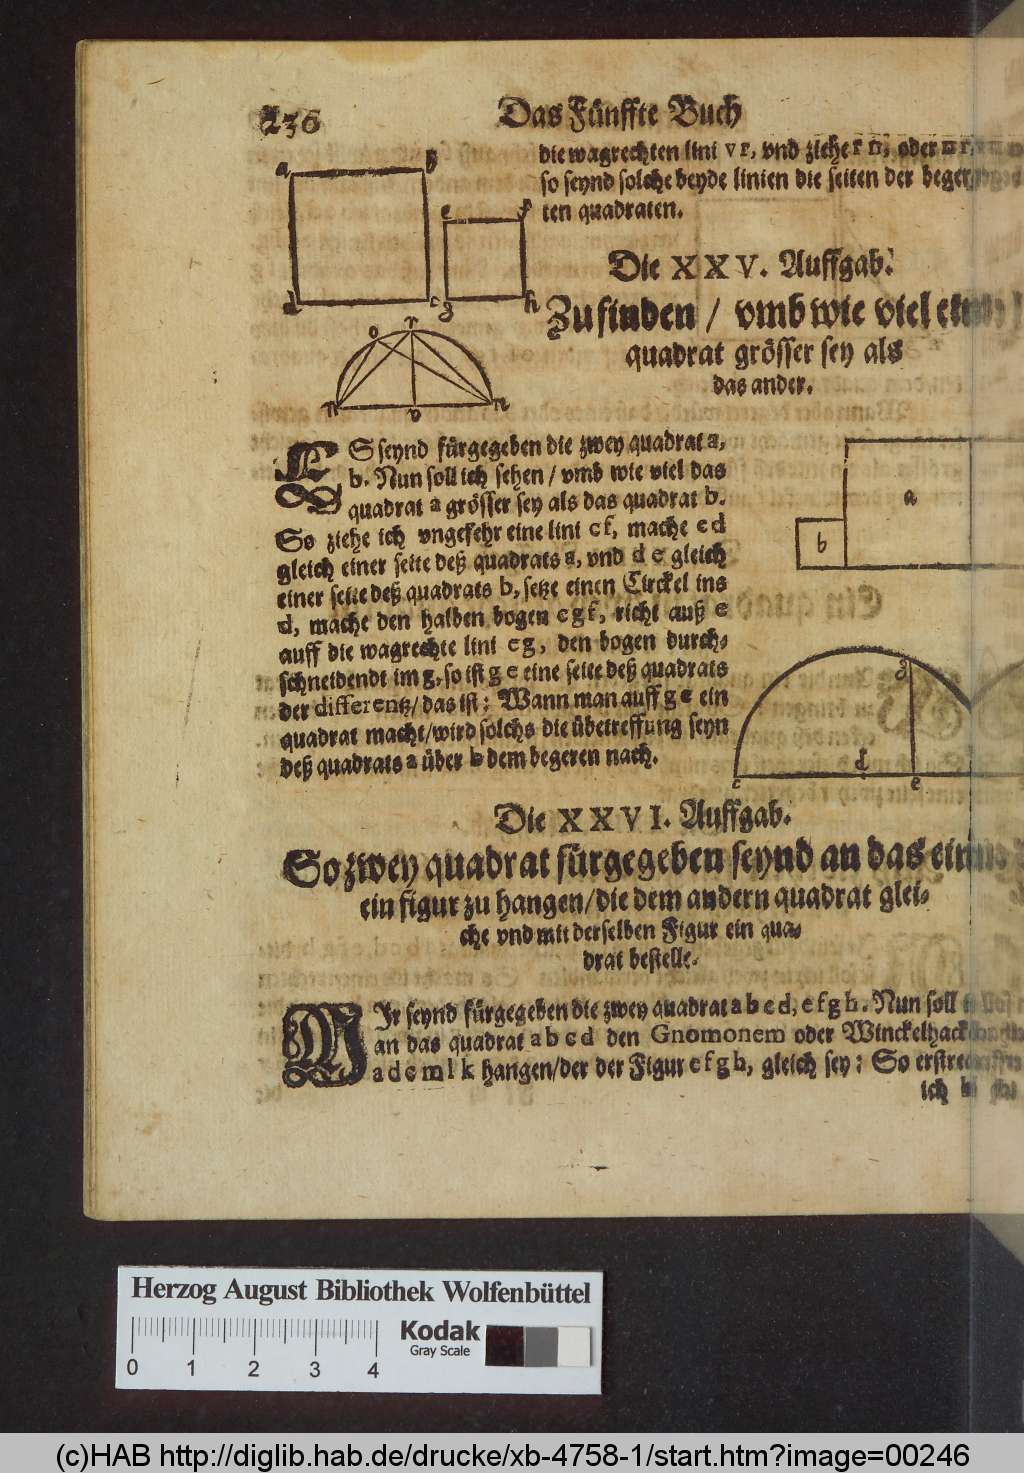 236 Das Fünffte Buch
die wagrechten lini v r, vnd ziehe r n, oder
so seynd solche beyde linien die seiten der beger
ten quadraten.
a b
e f
d c g h
o r
n v n
Die XXV. Auffgab.
Zufinden / vmb wie viel ein
quadrat grösser sey als
das ander.
ES seynd fürgegeben die zwey quadrat a,
b. Nun soll ich sehen / vmb wie viel das
quadrat a grösser sey als das quadrat b.
So ziehe ich vngefehr eine lini c f, mache e d
gleich einer seite deß quadrats a, vnd d e gleich
einer seite deß quadrats b, setze einen Circkel ins
d, mache den halben bogen c g f, richt auß e
auff die wagrechte lini e g, den bogen durch-
schneidendt im g, so ist g e eine seite deß quadrats
der differentz/ das ist: Wann man auff g e ein
quadrat macht/ wird solchs die übetreffung seyn
deß quadrats a über b dem begeren nach.
a
b
g
d
c e
Die XXVI. Auffgab.
So zwey quadrat fürgegeben seynd an das ein
ein figur zu hangen/ die dem andern quadrat glei-
che vnd mit derselben Figur ein qua-
drat bestelle.
MIr seynd fürgegeben die zwey quadrat a b c d, e f g h. Nun soll
an das quadrat a b c d den Gnomonem oder Winckelhack
a d c m l k hangen/ der der Figur e f g h, gleich sey: So erstre
ich
Herzog August Bibliothek Wolfenbüttel
Kodak
Gray Scale
0 1 2 3 4
(c)HAB http://diglib.hab.de/drucke/xb-4758-1/start.htm?image=00246